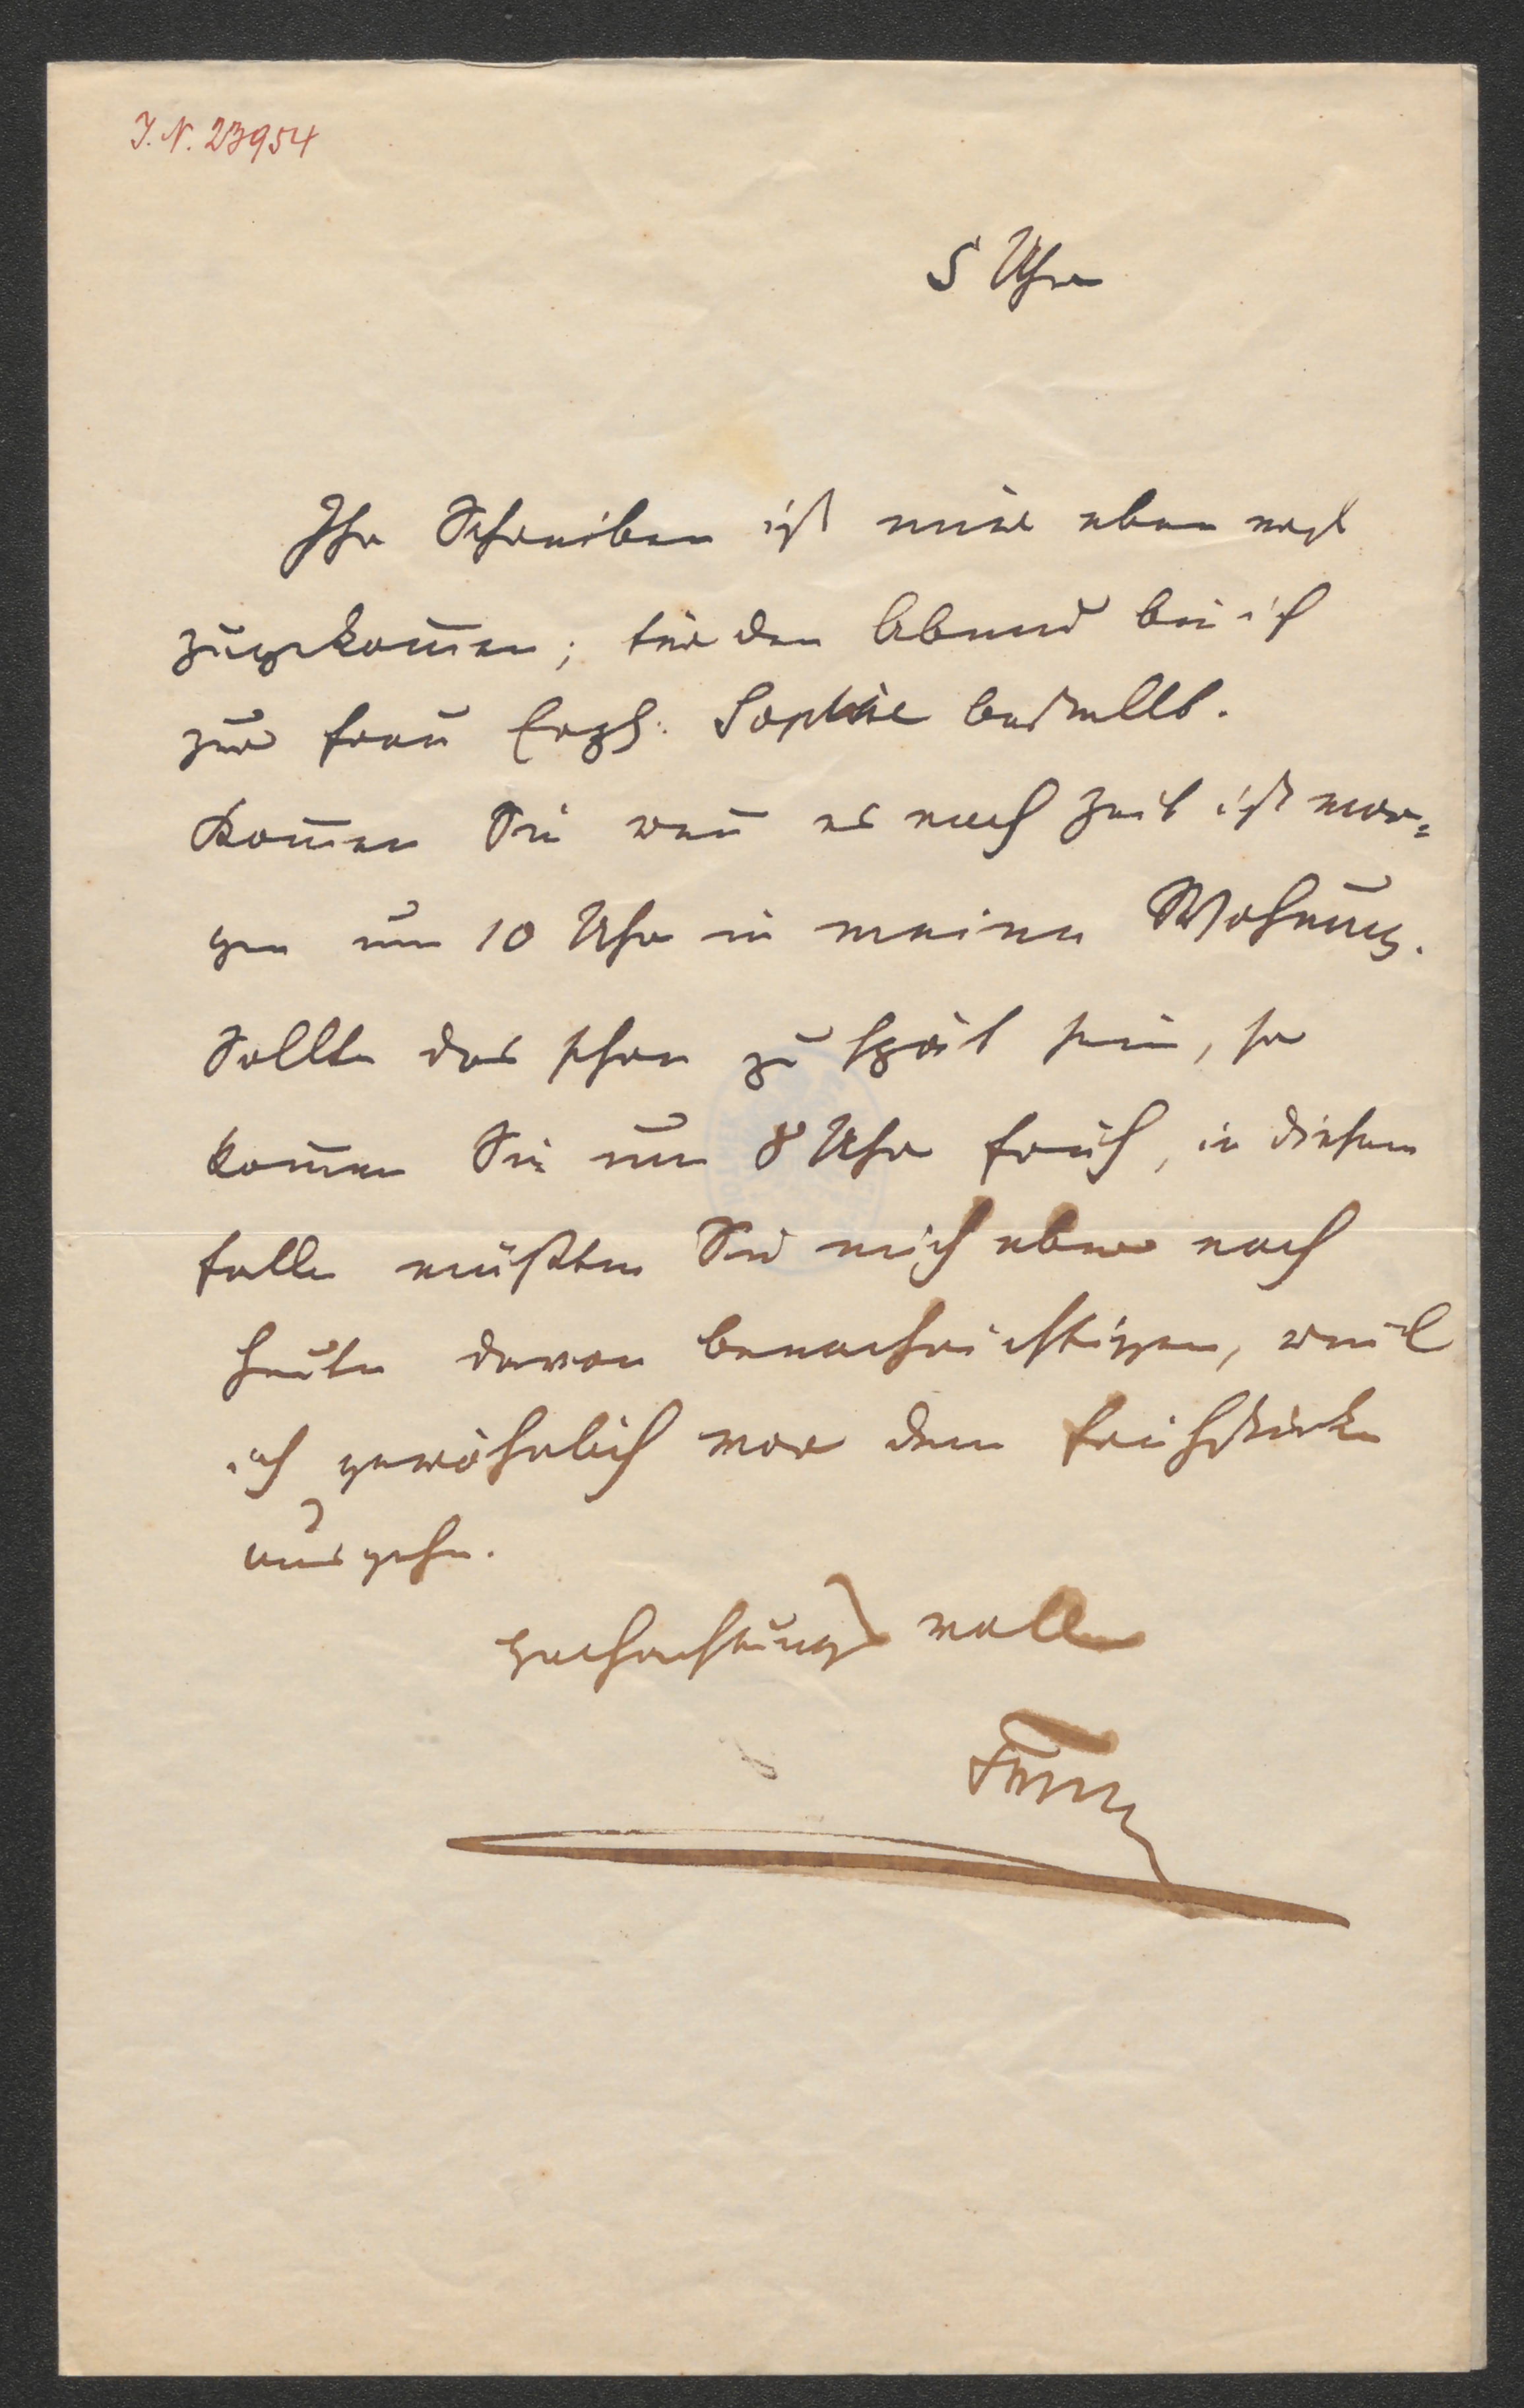 I. N. 23954
5 Uhr
Ihr Schreiben ist mir eben erst
zugekom̄en; für den Abend bin ich
zur Frau Erzh: Sophie bestellt.
Kom̄en Sie wen̄ es noch Zeit ist mor=
gen um 10 Uhr in meine Wohnung.
Sollte das schon zu spät sein, so
kom̄en Sie um 8 Uhr früh, in diesem
Falle müßten Sie mich aber noch
heute davon benachrichtigen, weil
ich gewöhnlich vor dem Frühstücke
ausgehe.
Hochachtungsvoll